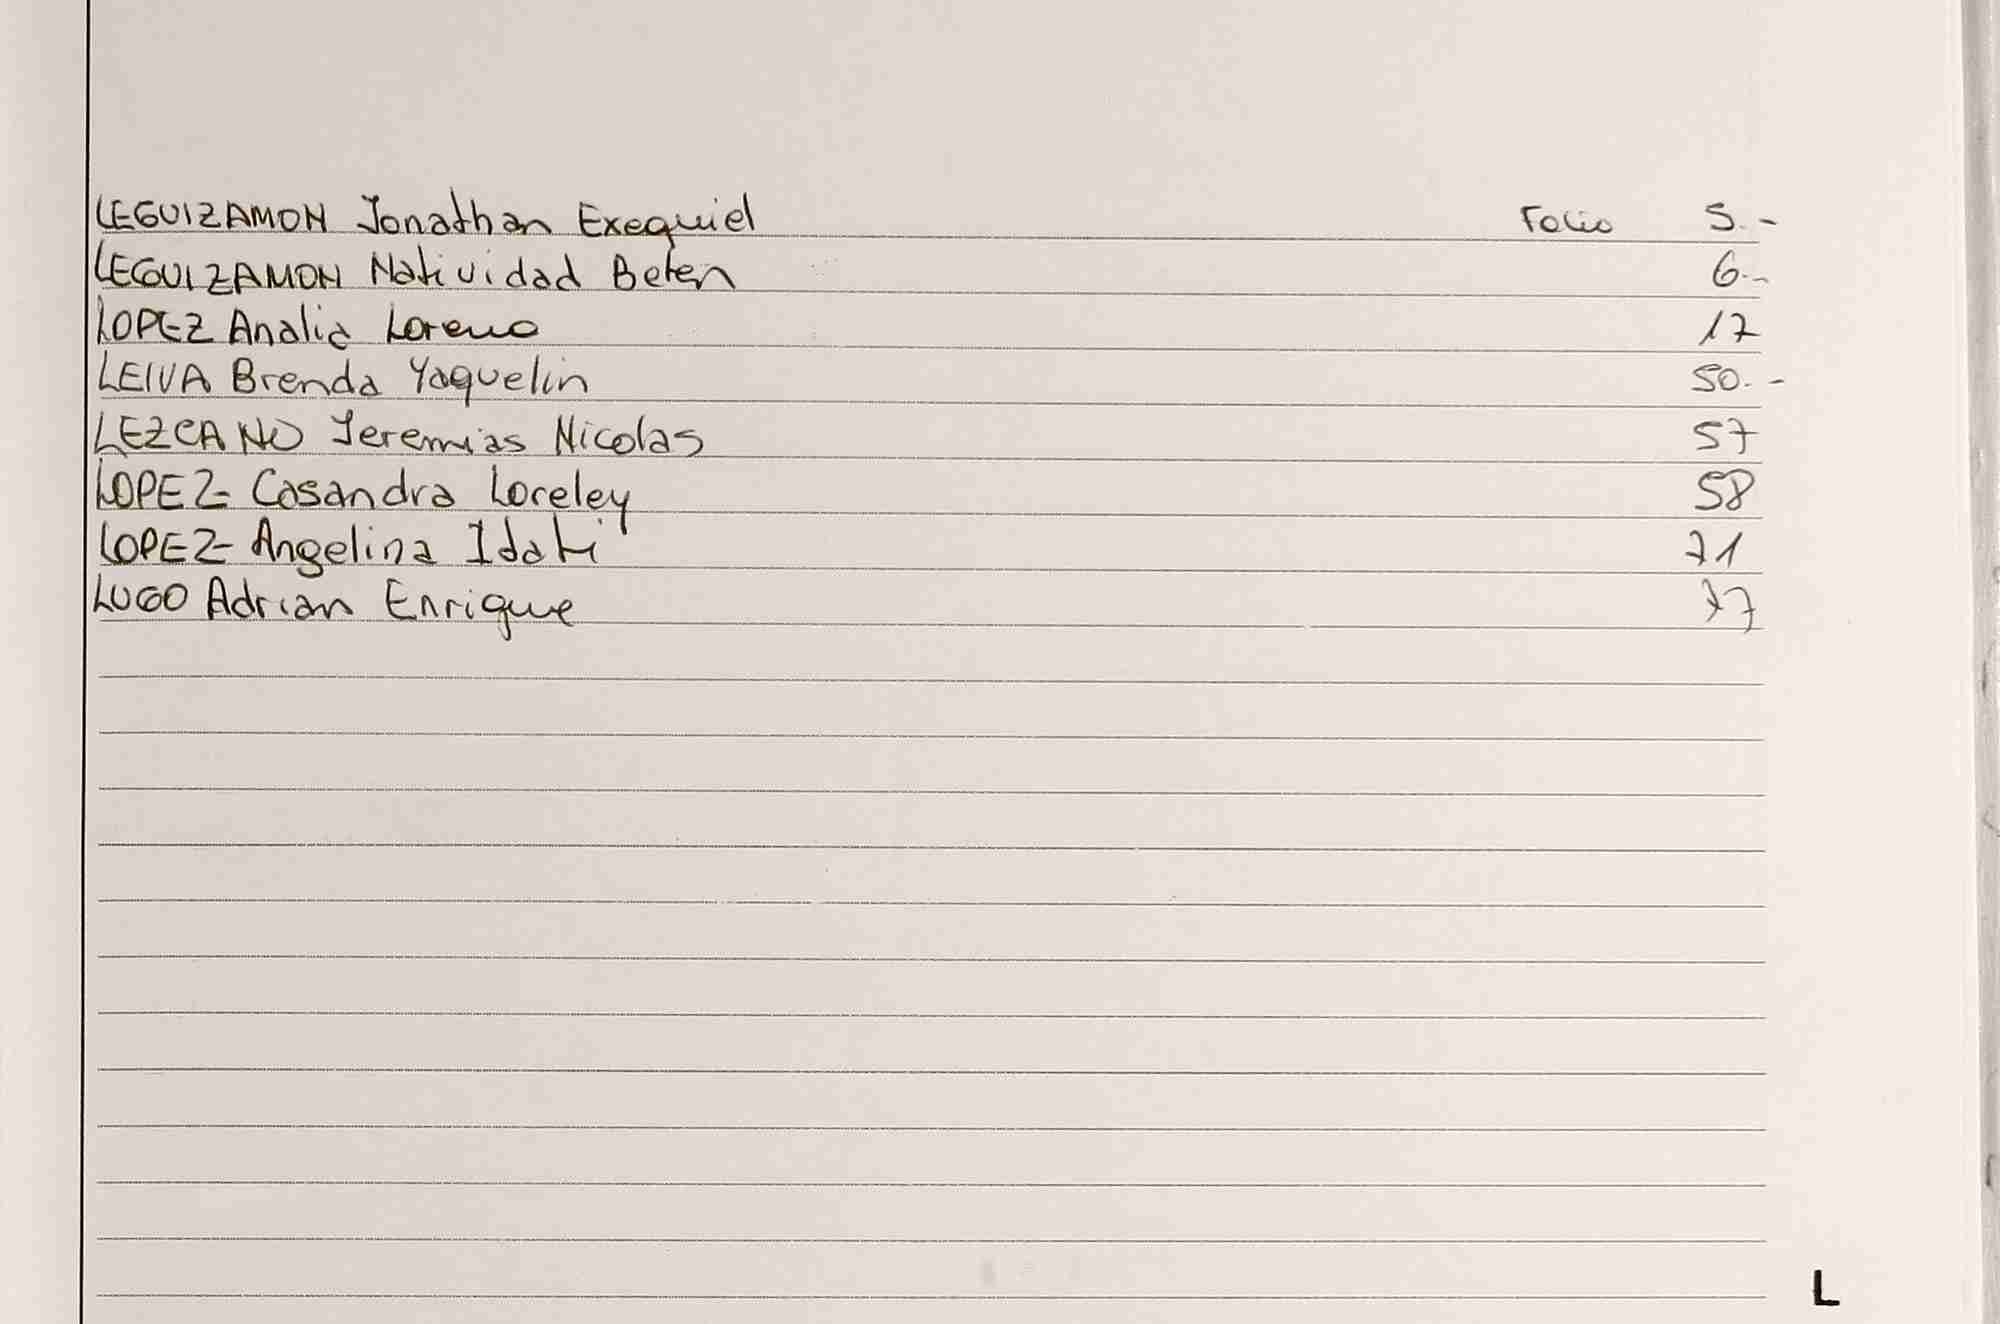 LEGUIZAMON Jonathan Exequiel Folio 5.-
LEGUIZAMON Natividad Belen 6.-
LOPEZ Analia Lorena 17
LEIVA Brenda Yaquelin 50.-
LEZCANO Jeremias Nicolas 57
LOPEZ- Casandra Loreley 58
LOPEZ- Angelina Idati 71
LUGO Adrian Enrique 77
L